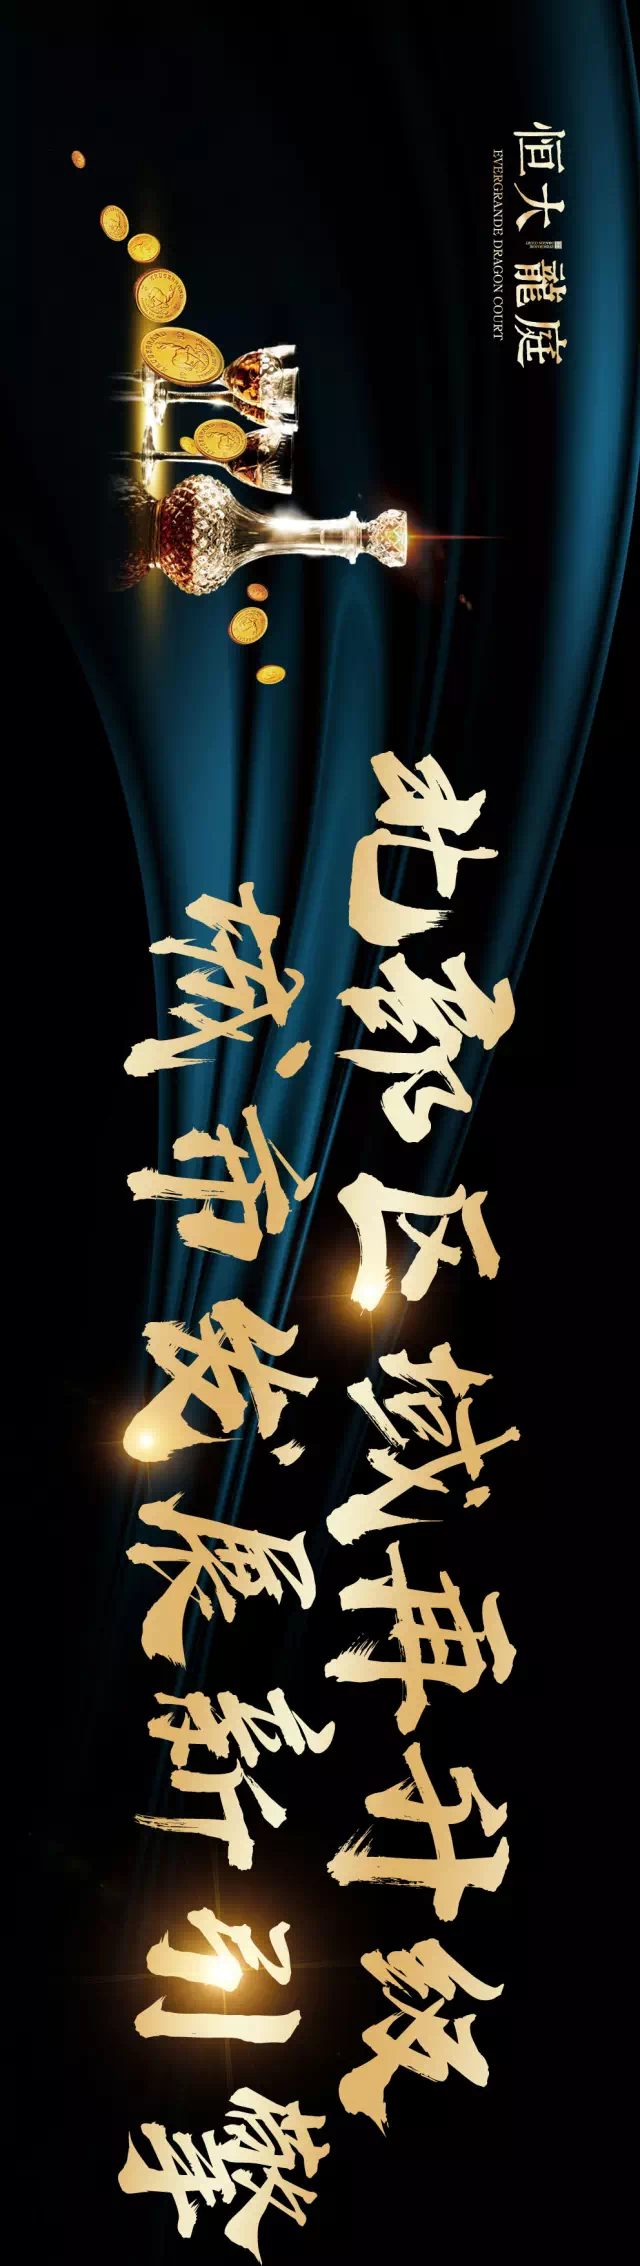 恒大龍庭
EVERGRANDE DRAGON COURT
北部区域再升级
城市发展新引擎